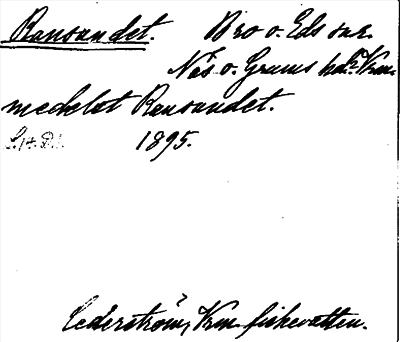 Ransundet. Bro o. Eds snr.
Näs o. Grums hdr Vrm.
medelst Ransundet.
1895.
Cederström, Vrm. fiskevatten.